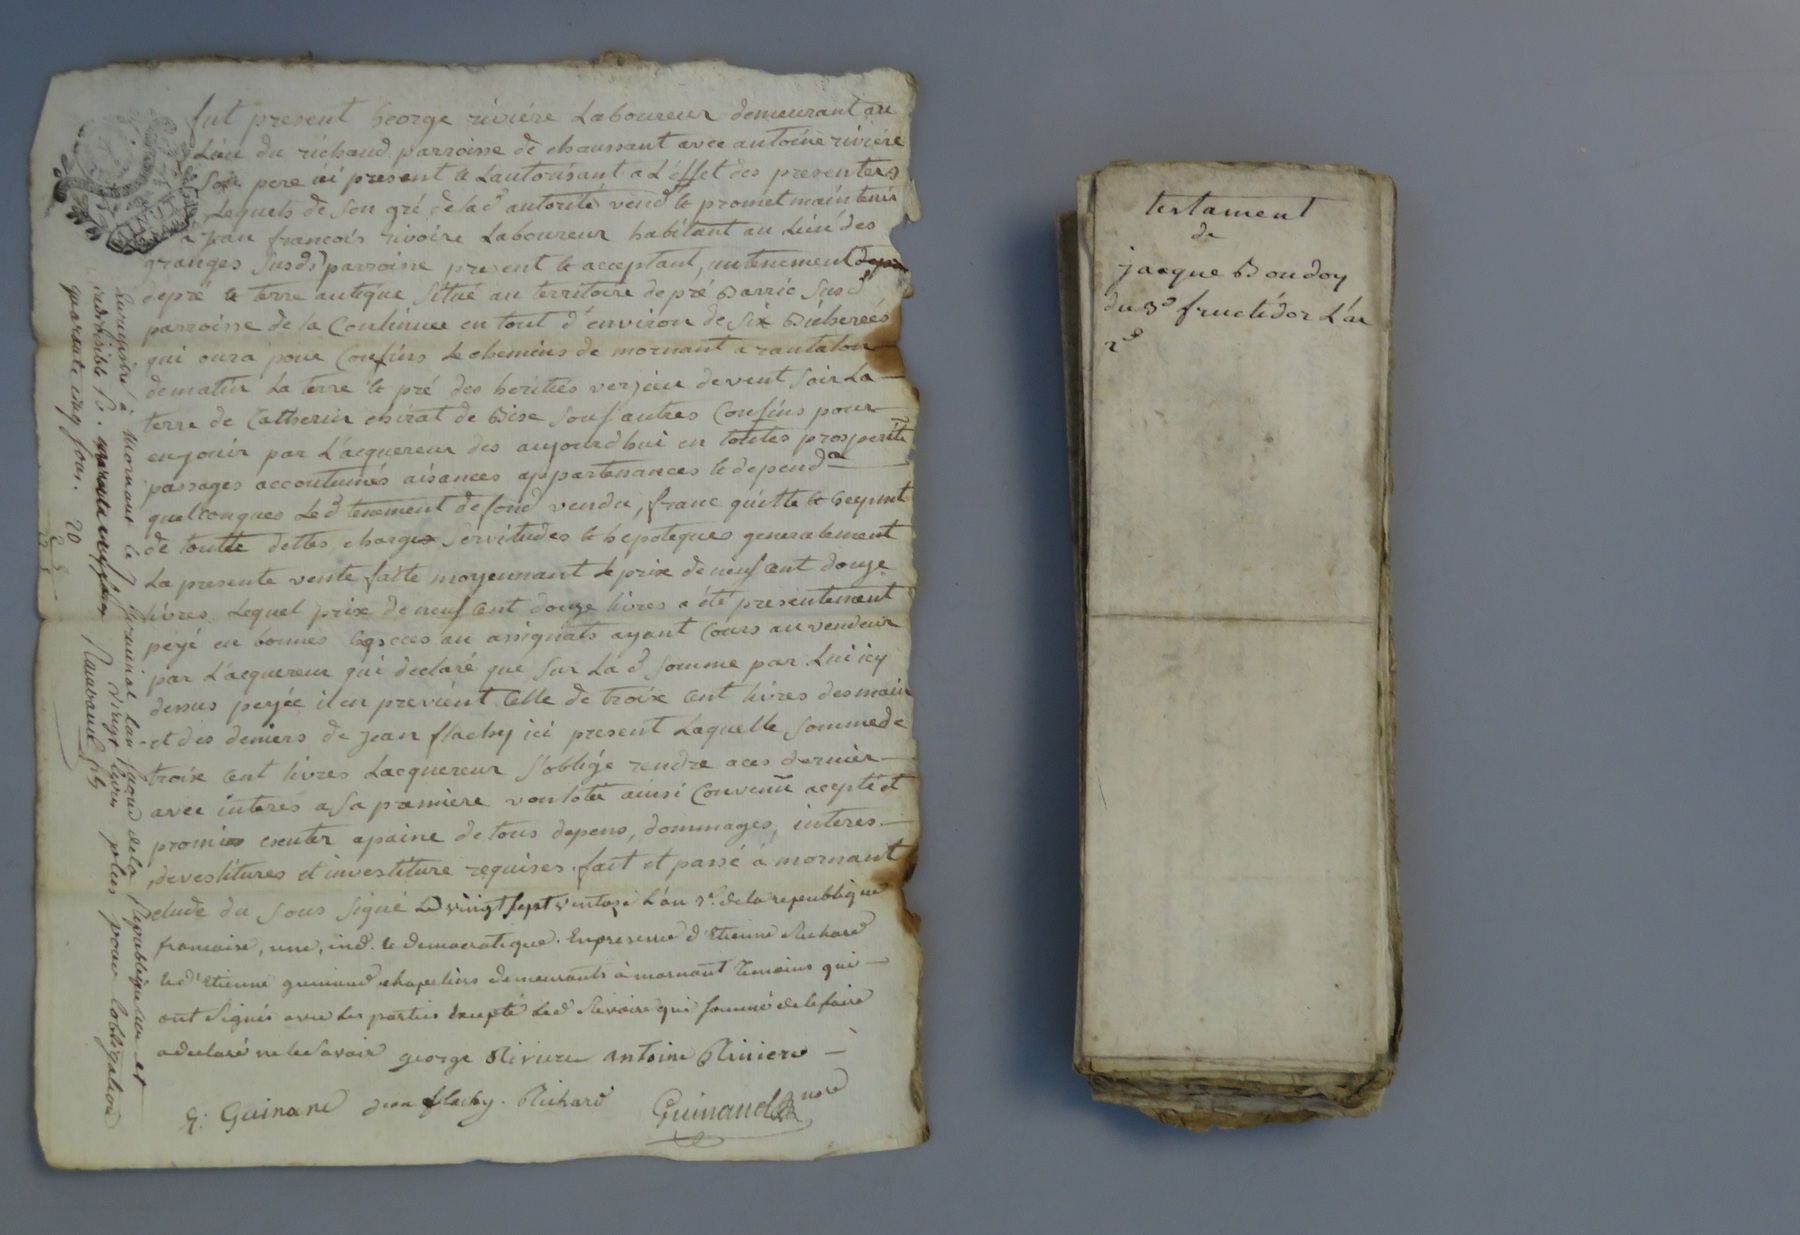 fut present George riviére Laboureur demeurant au
Lieu du richaud parroisse de chaussant avec antoine riviére
Son pere ici present & Lautorisant a L'éffet des presentes
Lequels de Son gré de lad autorité vend & promet maintenir
a jean françois rivoire Laboureur habitant au Lieu des
granges Susd parroisse present & acceptant, un tenement
de pré & terre antique Situé au territoire de pré Barric Susd
parroisse de la Continuee en tout d'environ de Six Bicherées
qui oura pour Confins Le chemins de mornant a rantalon
de matin La terre & pré des heritiés verzieu de vent Soir La
terre de Catherin chirat de Bise Sauf autres Confins pour
en jouir par L'acquereur des aujourdhui en toutes prosperité
passages accoutumés aisances appartenances & dependce
quelconques Led tenement de fond vendu, franc quitte &
de toutte dettes charges Servitudes & hepoteques generalement
La presente vente faite moyennant Le prix de neuf cent douze
livres Lequel prix de neuf cent douze livres a été presentement
peyé en bonnes especes au assignats ayant Cours au vendeur
par L'acquereur qui declaré que Sur La d Somme par Lui icy
dessus peyée il en previent Celle de troix cent livres des main
et des deniers de jean flachy ici present Laquelle Somme de
troix cent livres Lacquereur S'oblige rendre a ces dernier
avec interes a Sa premiere vonloté ainsi Convenu acepté et
promis exeuter a paine de tous depens, dommages, interes
devestitures et investiture requises. fait et passé à mornant
etude du Sous Signé Le vingt Sept ventose L'an 2e. de la republique
francaise, une, ind. & democratique. En presence d'Etienne Richard
& d'Etienne guinand chapeliers demeurants à mornant temoins qui
ont Signés avec les parties Excepté Led Rivoire qui Sommé de le faire
a declaré ne le Savoir george Riviere antoine Riviere
E: Guinand jean flachy. Richard Guinand nore
Enregistré à Mornant le 7 germinal L'an Second de la Republique une et
indivisible Rs. vingt livres plus pour l'obligation
quarante cinq sous. 20
testament
de
jacque Boudoy
du 30 fructidor L'an
2e